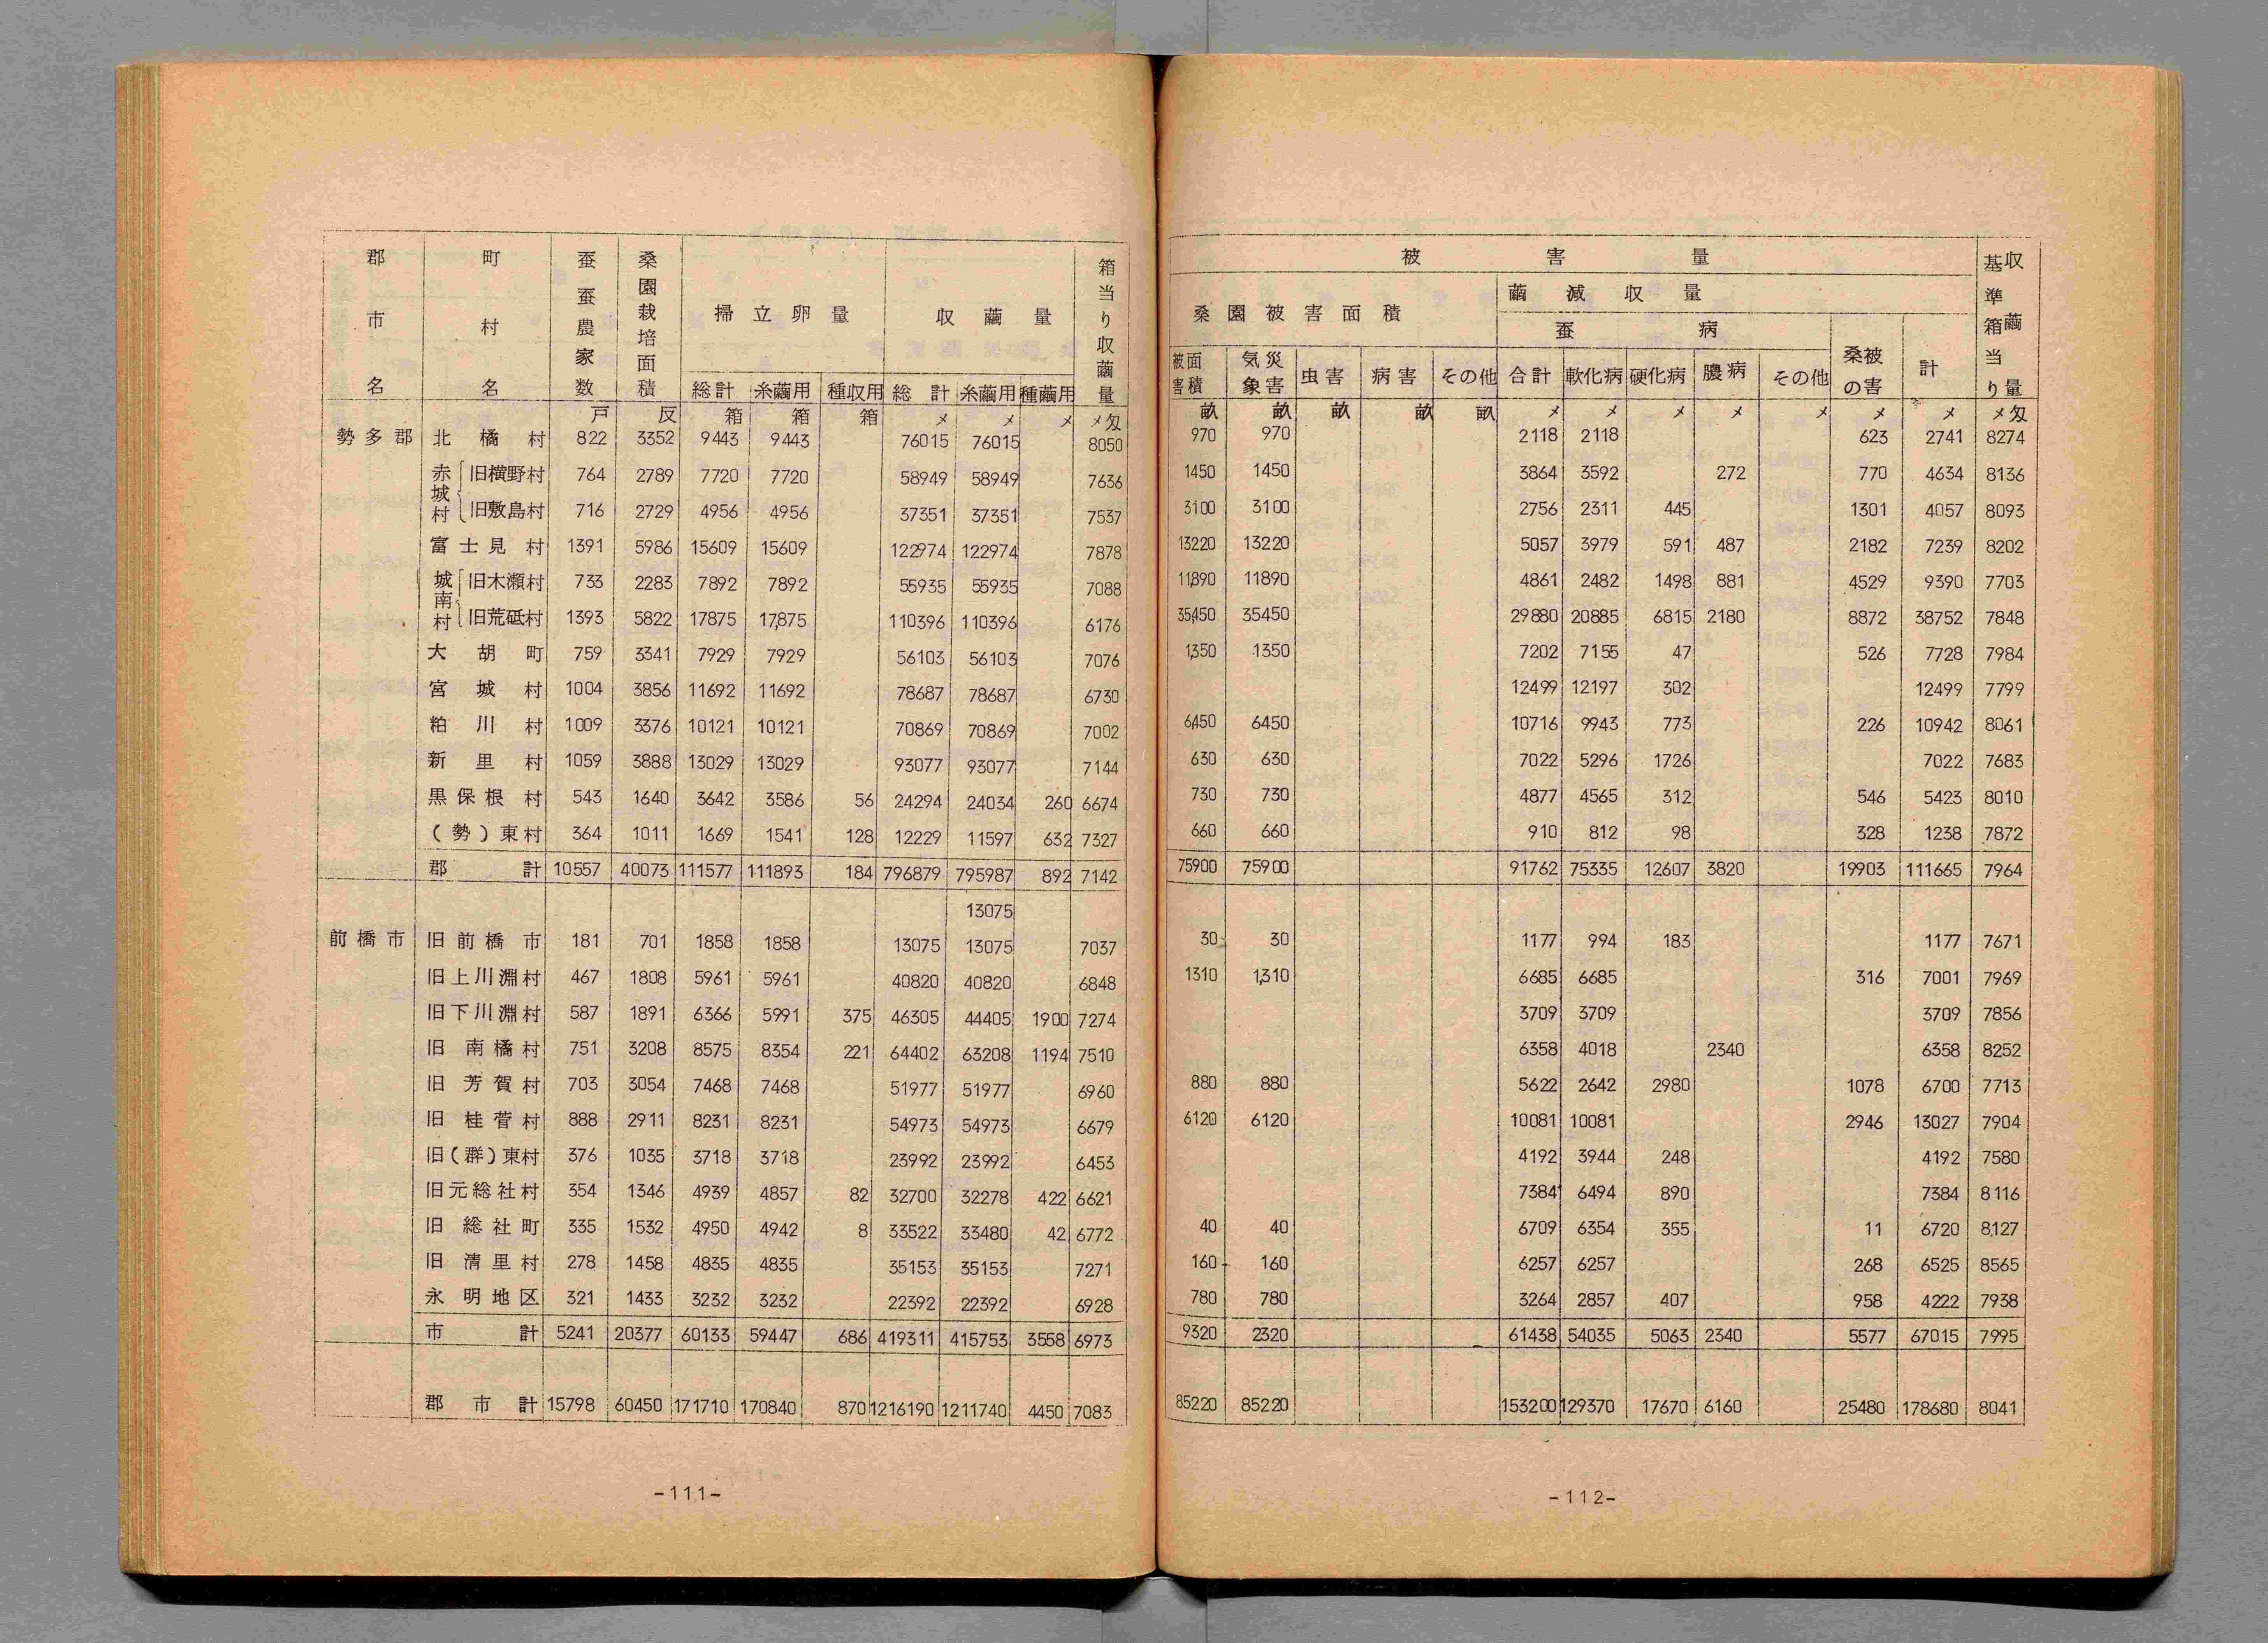 郡市名 町村名 蚕蚕農家数 桑園栽培面積 掃立卵量 収繭量 箱当り収繭量
総計 糸繭用 種収用 総計 糸繭用 種繭用
戸 反 箱 箱 箱 メ メ メ メ匁
勢多郡 北橘村 822 3352 9443 9443 76015 76015 8050
赤城村 旧横野村 764 2789 7720 7720 58949 58949 7636
旧敷島村 716 2729 4956 4956 37351 37351 7537
富士見村 1391 5986 15609 15609 122974 122974 7878
城南村 旧木瀬村 733 2283 7892 7892 55935 55935 7088
旧荒砥村 1393 5822 17875 17,875 110396 110396 6176
大胡町 759 3341 7929 7929 56103 56103 7076
宮城村 1004 3856 11692 11692 78687 78687 6730
粕川村 1009 3376 10121 10121 70869 70869 7002
新里村 1059 3888 13029 13029 93077 93077 7144
黒保根村 543 1640 3642 3586 56 24294 24034 260 6674
(勢)東村 364 1011 1669 1541 128 12229 11597 632 7327
郡計 10557 40073 111577 111893 184 796879 795987 892 7142
13075
前橋市 旧前橋市 181 701 1858 1858 13075 13075 7037
旧上川淵村 467 1808 5961 5961 40820 40820 6848
旧下川淵村 587 1891 6366 5991 375 46305 44405 1900 7274
旧南橘村 751 3208 8575 8354 221 64402 63208 1194 7510
旧芳賀村 703 3054 7468 7468 51977 51977 6960
旧桂菅村 888 2911 8231 8231 54973 54973 6679
旧(群)東村 376 1035 3718 3718 23992 23992 6453
旧元総社村 354 1346 4939 4857 82 32700 32278 422 6621
旧総社町 335 1532 4950 4942 8 33522 33480 42 6772
旧清里村 278 1458 4835 4835 35153 35153 7271
永明地区 321 1433 3232 3232 22392 22392 6928
市計 5241 20377 60133 59447 686 419311 415753 3558 6973
郡市計 15798 60450 171710 170840 870 1216190 1211740 4450 7083
-111-
被害量 基準箱当り収繭量
桑園被害面積 繭減収量
蚕病 桑の被害 計
被害面積 気象災害 虫害 病害 その他 合計 軟化病 硬化病 膿病 その他
畝 畝 畝 畝 畝 メ メ メ メ メ メ メ メ匁
970 970 2118 2118 623 2741 8274
1450 1450 3864 3592 272 770 4634 8136
3100 3100 2756 2311 445 1301 4057 8093
13220 13220 5057 3979 591 487 2182 7239 8202
11890 11890 4861 2482 1498 881 4529 9390 7703
35450 35450 29880 20885 6815 2180 8872 38752 7848
1350 1350 7202 7155 47 526 7728 7984
12499 12197 302 12499 7799
6450 6450 10716 9943 773 226 10942 8061
630 630 7022 5296 1726 7022 7683
730 730 4877 4565 312 546 5423 8010
660 660 910 812 98 328 1238 7872
75900 75900 91762 75335 12607 3820 19903 111665 7964
30 30 1177 994 183 1177 7671
1310 1,310 6685 6685 316 7001 7969
3709 3709 3709 7856
6358 4018 2340 6358 8252
880 880 5622 2642 2980 1078 6700 7713
6120 6120 10081 10081 2946 13027 7904
4192 3944 248 4192 7580
7384 6494 890 7384 8116
40 40 6709 6354 355 11 6720 8127
160 160 6257 6257 268 6525 8565
780 780 3264 2857 407 958 4222 7938
9320 2320 61438 54035 5063 2340 5577 67015 7995
85220 85220 153200 129370 17670 6160 25480 178680 8041
-112-